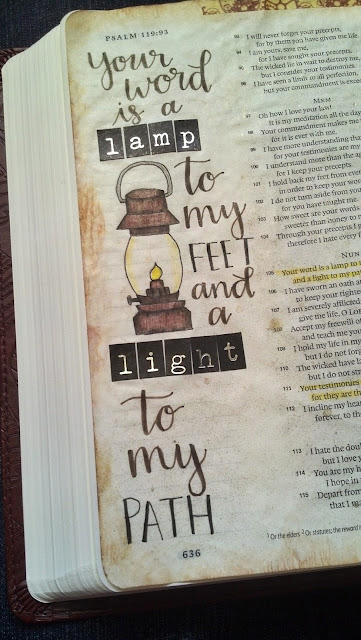 PSALM 119:93
Your
word
is a
lamp
to
my
FEET
and
a
light
to
my
PATH
636
93 I will never forget your precepts,
for by them you have given me life.
94 I am yours, save me,
for I have sought your precepts.
95 The wicked lie in wait to destroy me,
but I consider your testimonies.
96 I have seen a limit to all perfection,
but your commandment is
MEM
97 Oh how I love your law!
It is my meditation all the
98 Your commandment makes me
for it is ever with me.
99 I have more understanding
for your testimonies are my
100 I understand more than the
for I keep your precepts.
101 I hold back my feet from
in order to keep your
102 I do not turn aside from your
for you have taught me.
103 How sweet are your words
sweeter than honey to
104 Through your precepts I
therefore I hate every
NUN
105 Your word is a lamp to
and a light to my
106 I have sworn an oath
to keep your
107 I am severely afflicted
give me life, O
108 Accept my freewill
and teach me
109 I hold my life in my
but I do not
110 The wicked have
but I do not
111 Your testimonies
for they are
112 I incline my
forever, to
113 I hate the
but I love
114 You are my
I hope in
115 Depart from
that I
1 Or the elders 2 Or statutes; the reward